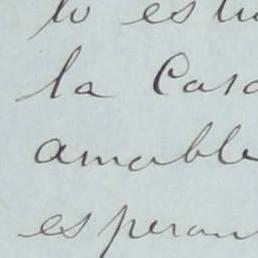 lo estu
la Casa
amable
esperan